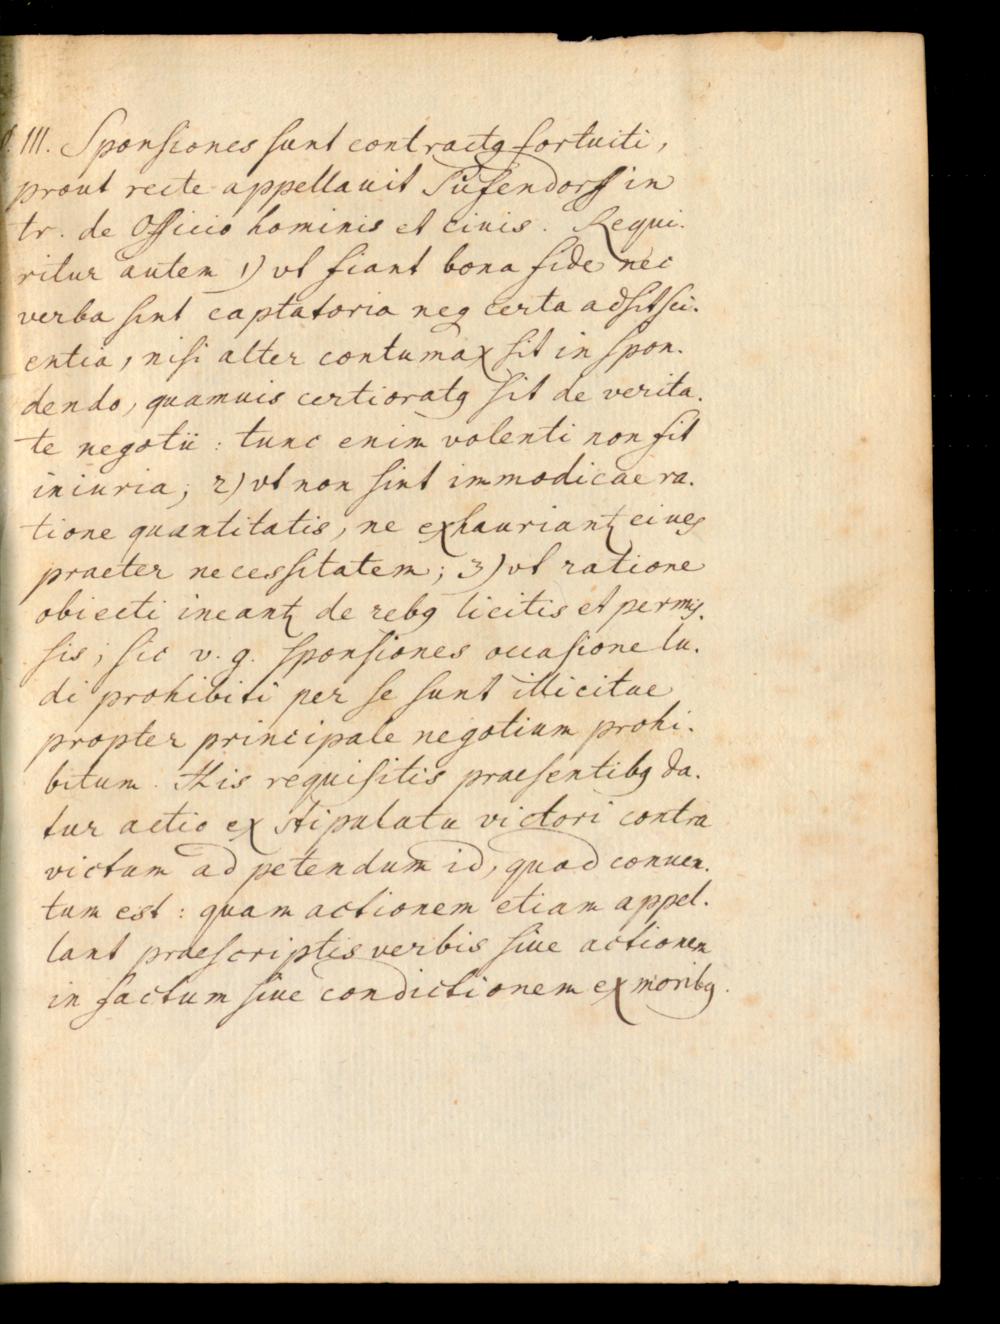 §. III. Sponsiones sunt contractq fortuiti,
prout recte appellauit Pufendorff in
tr. de Officio hominis et ciuis. Requi-
ritur autem 1) vt fiant bona fide nec
verba sint captatoria neq certa adsit sci-
entia, nisi alter contumax sit in spon-
dendo, quamuis certioratq sit de verita-
te negotii: tunc enim volenti non fit
iniuria; 2) vt non sint immodicae ra-
tione quantitatis, ne exhauriantꝛ ciues
praeter necessitatem; 3) vt ratione
obiecti ineantꝛ de rebq licitis et permis-
sis; sic v. g. sponsiones occasione lu-
di prohibiti per se sunt illicitae
propter principale negotium prohi-
bitum. His requisitis praesentibq da-
tur actio ex stipulatu victori contra
victum ad petendum id, quod conuen-
tum est: quam actionem etiam appel-
lant praescriptis verbis siue actionem
in factum siue condictionem ex moribq.